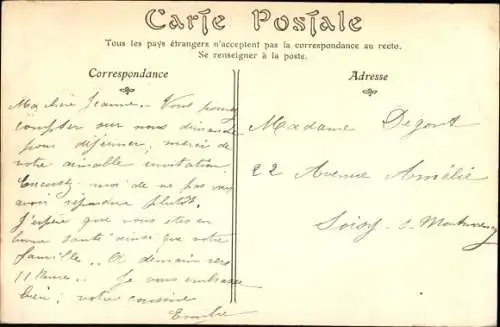 Carte Postale
Tous les pays étrangers n'acceptent pas la correspondance au recto.
Se renseigner à la poste.
Correspondance
Ma chère Jeanne.. Vous pouvez
compter sur nous dimanche
pour déjeuner, merci de
votre aimable invitation
Excusez-moi de ne pas vous
avoir répondre plutôt.
J'espère que vous êtes en
bonne santé ainsi que votre
famille.. A demain vers
11 heures.. Je vous embrasse
bien; votre cousine
Adresse
Madame Degort
22 Avenue Amélie
Soisy s. Montmorency